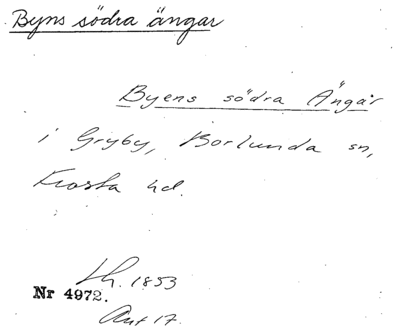 Byns södra ängar
Byens södra Ängar
i Gryby, Borlunda sn,
Frosta hd.
Lh. 1853
Nr 4972.
Akt 17.